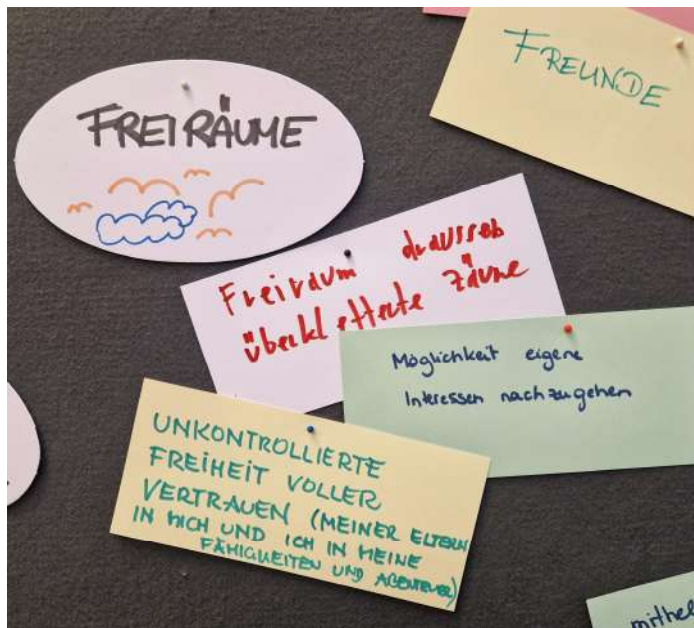 FREIRÄUME
FREUNDE
Freiraum draussen
überkletterte Zäune
Möglichkeit eigene
Interessen nachzugehen
UNKONTROLLIERTE
FREIHEIT VOLLER
VERTRAUEN (MEINER ELTERN
IN MICH UND ICH IN MEINE
FÄHIGKEITEN UND ABENTEUER)
mithel